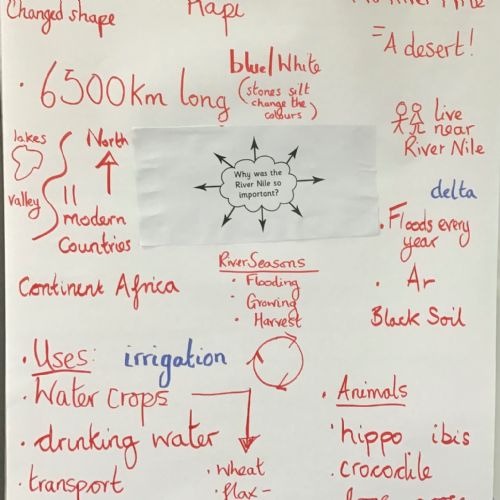 Changed shape
Hapi
= A desert!
· 6500km long
blue/White
(stones silt
change the
colours)
live
near
River Nile
lakes
valley
North
11
modern
Countries
Why was the
River Nile so
important?
delta
· Floods every
year
· Ar
Black Soil
Continent Africa
River Seasons
· Flooding
· Growing
· Harvest
· Uses: irrigation
· Water crops
· drinking water
· transport
· wheat
· flax -
· Animals
hippo ibis
crocodile